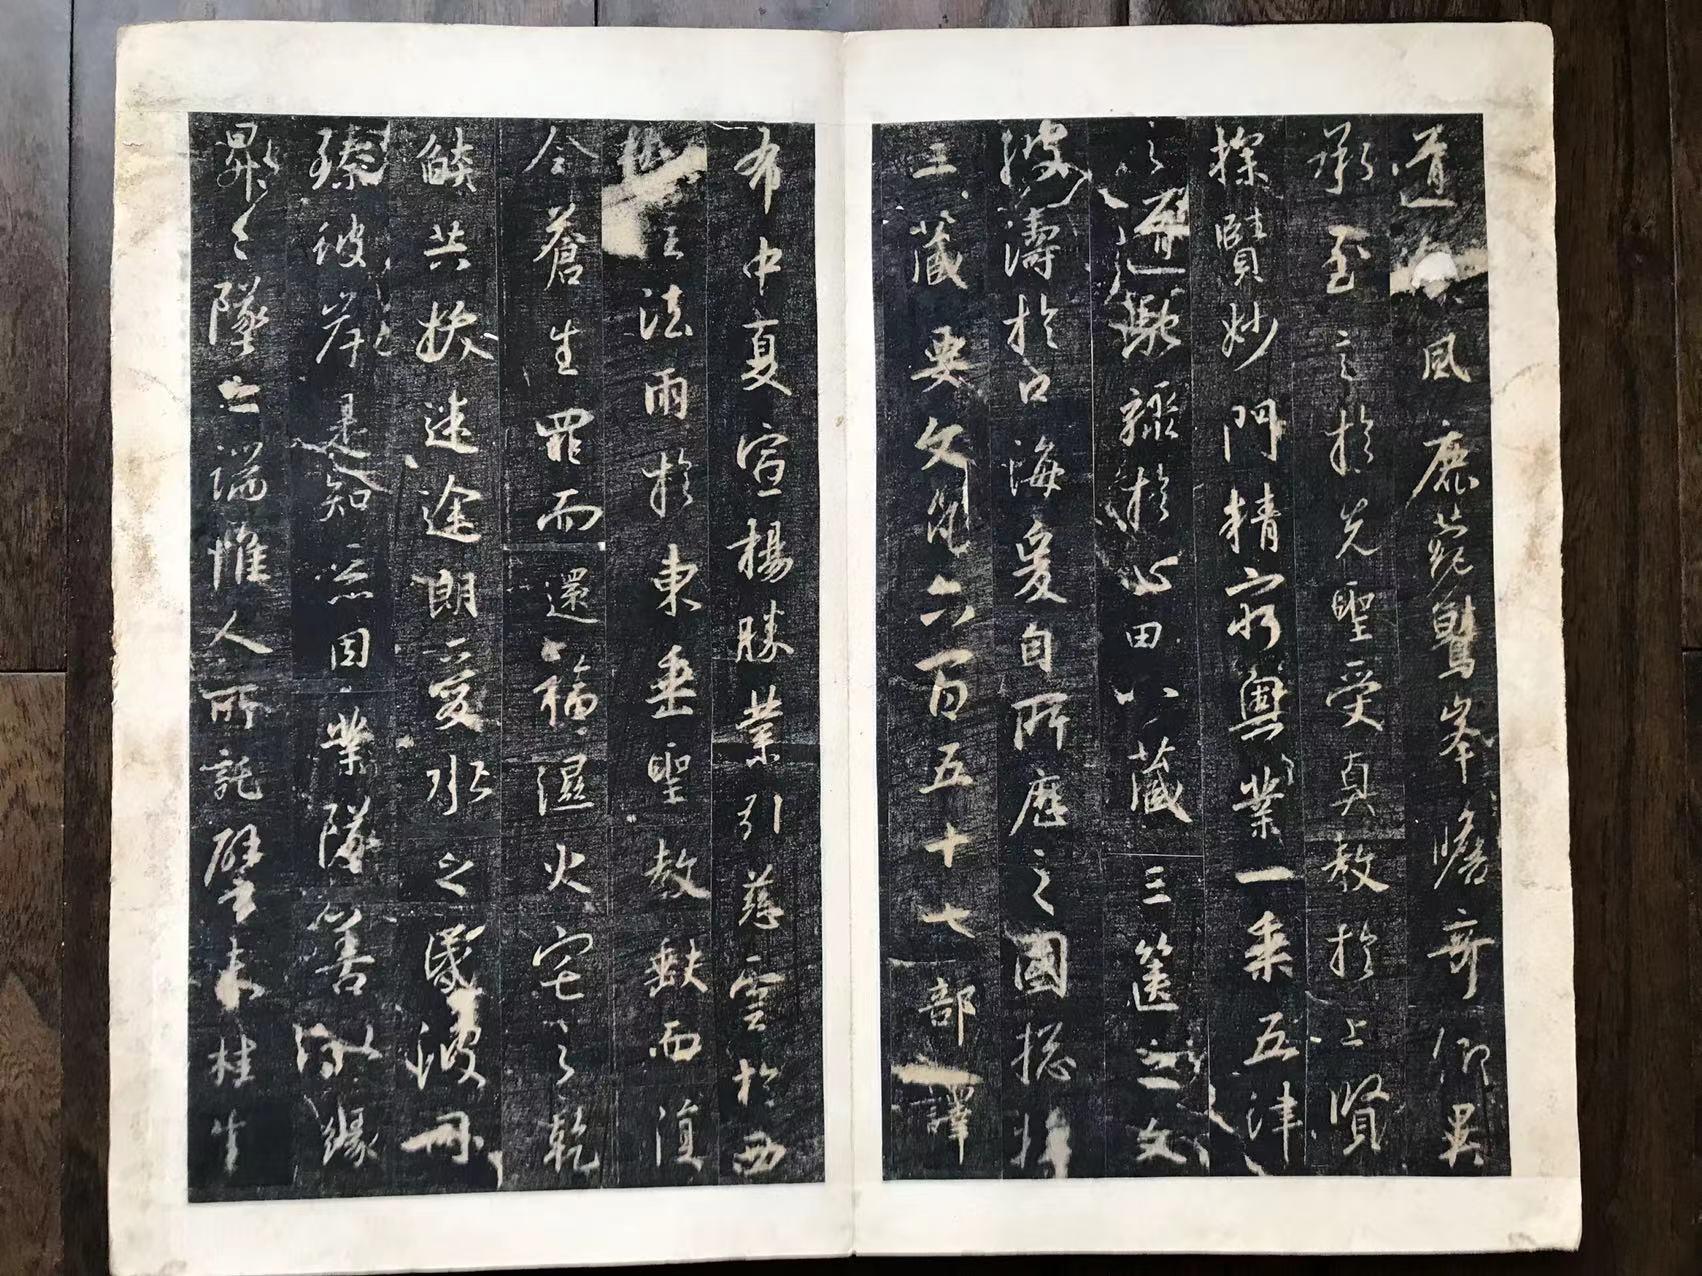 道 風鹿苑鷲峯瞻奇仰異
承至言於先聖受真教於上賢
探賾妙門精窮奥業一乗五津
之道馳驟於心田八藏三篋之文
波濤於口海爰自所歷之國揔將
三藏要文凡六百五十七部譯
布中夏宣揚勝業引慈雲於西
極注法雨於東垂聖教缺而復
全蒼生罪而還福濕火宅之乾
燄共拔迷途朗愛水之昏波同
臻彼岸是知惡因業墜善以緣
昇昇墜之端惟人所託譬夫桂生